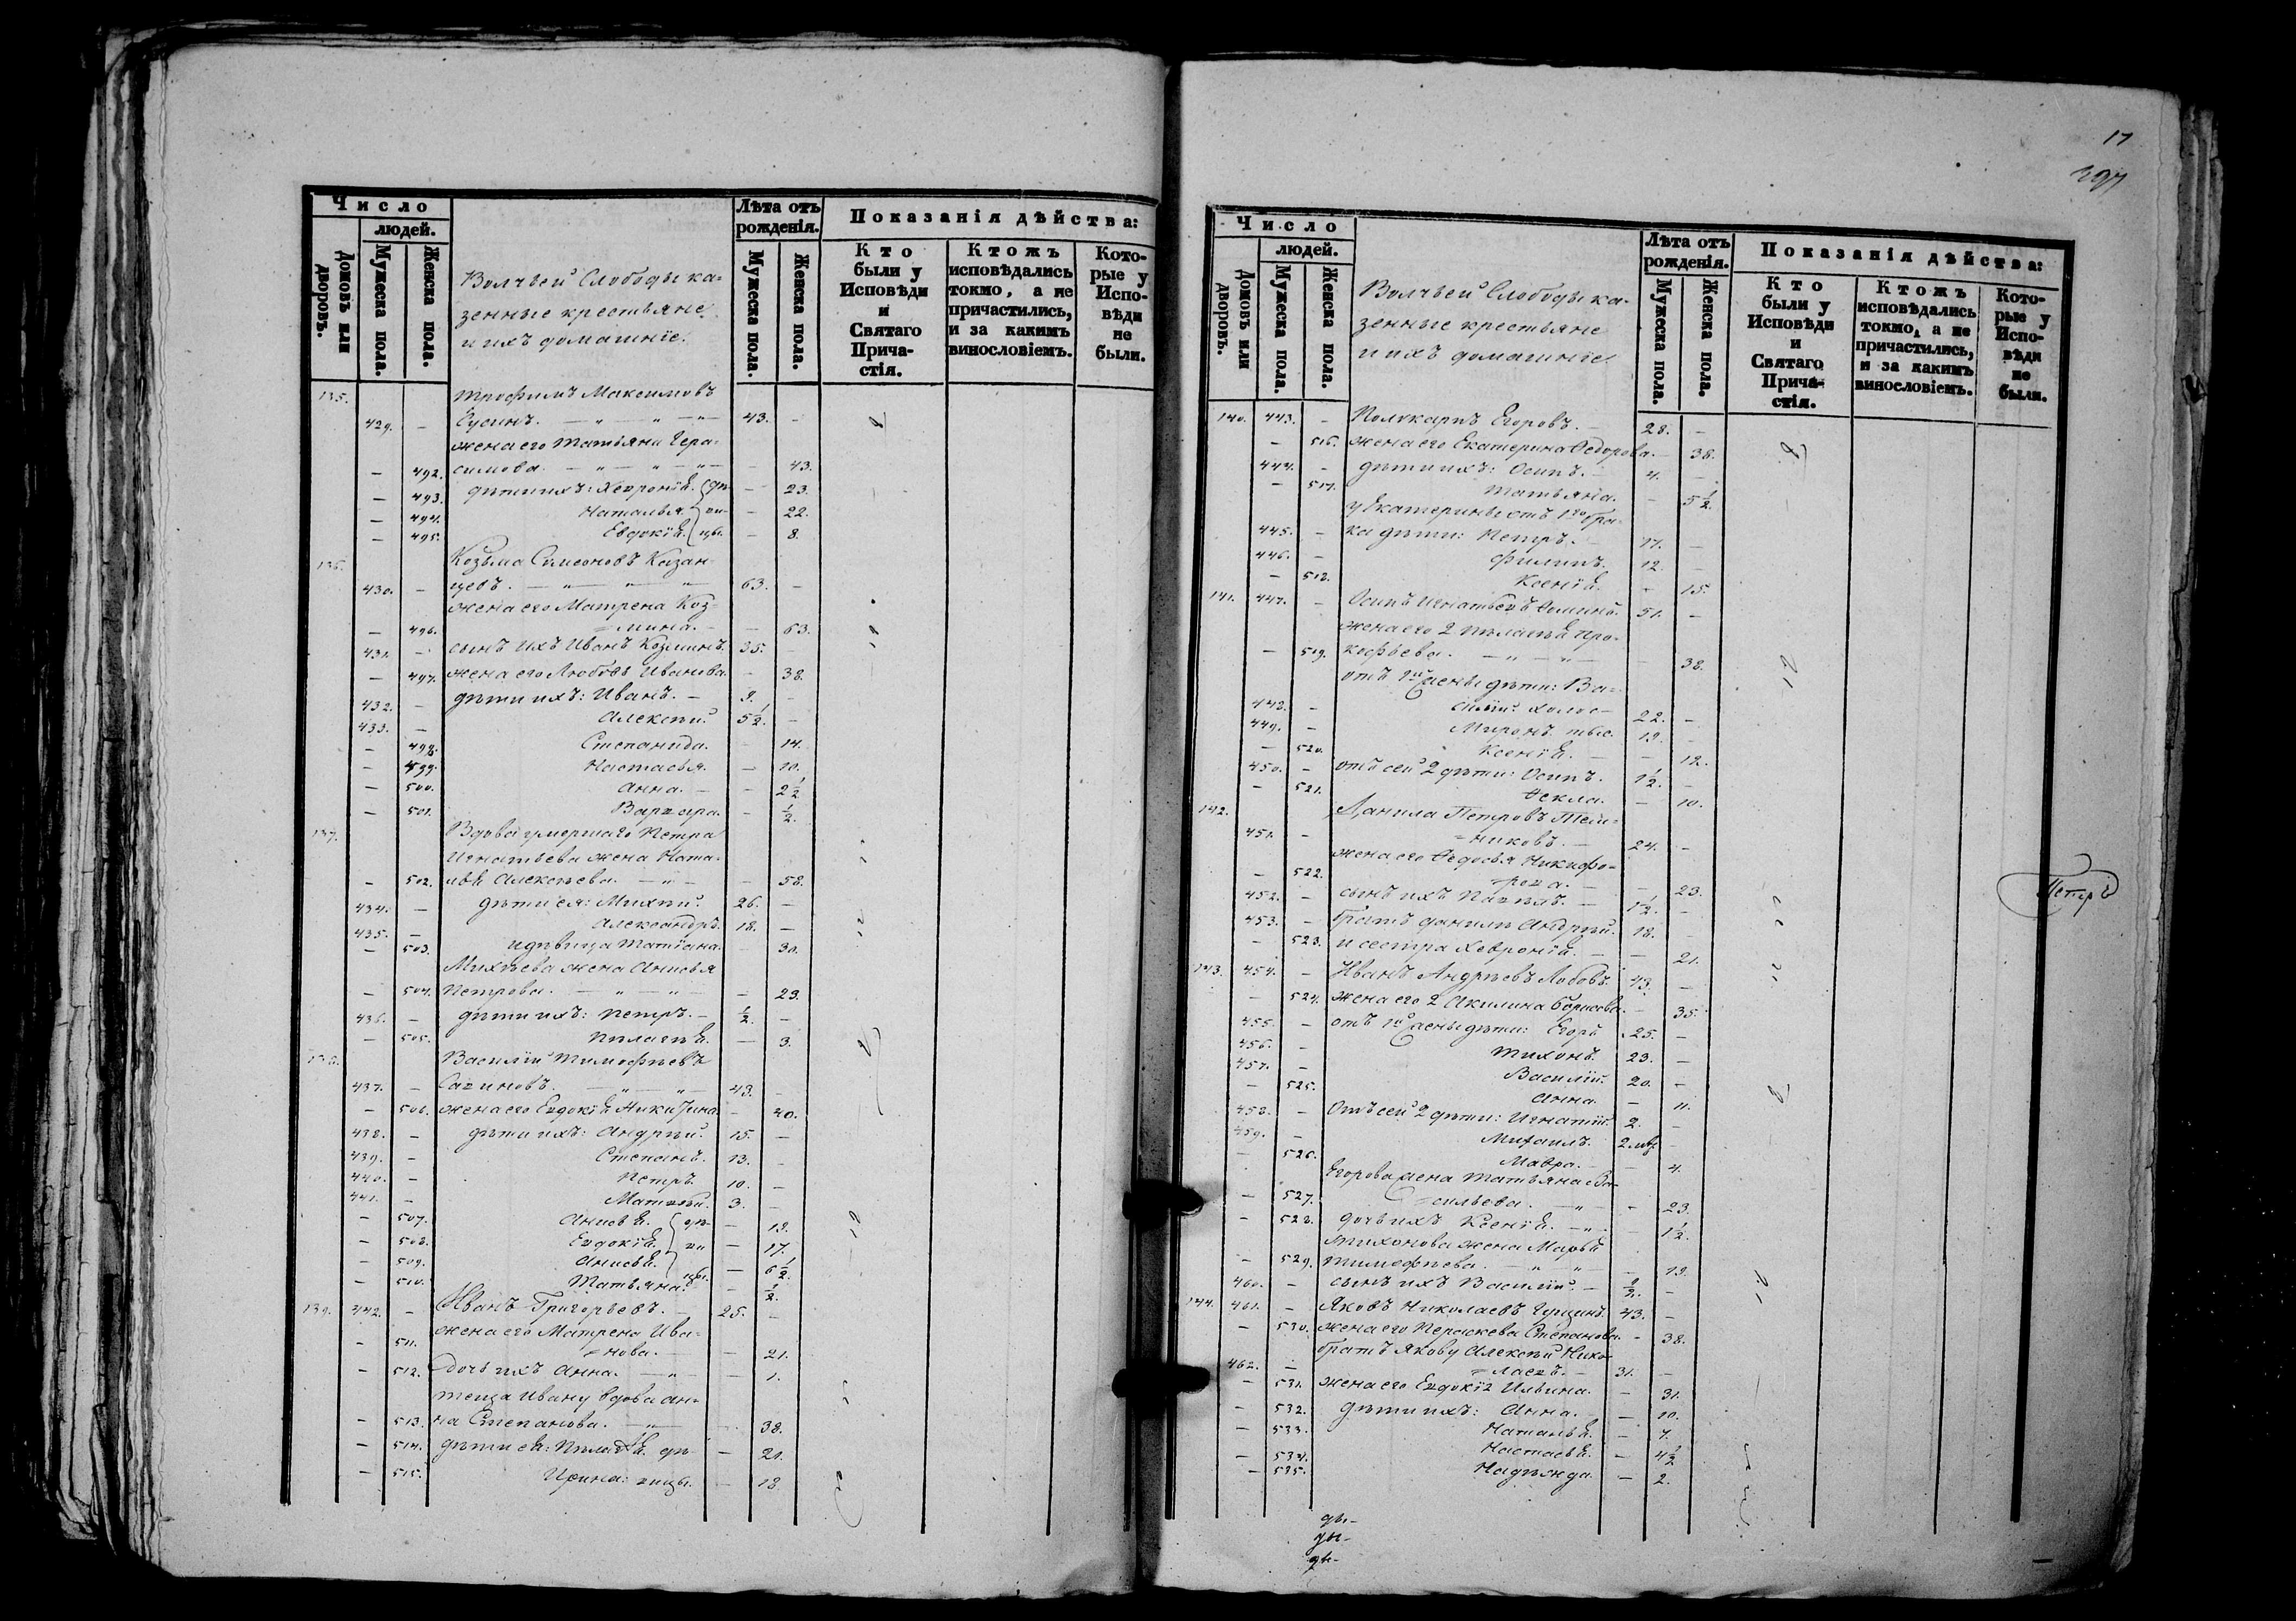 Число
людей.
Домовъ или дворовъ.
Мужеска пола.
Женска пола.
Волчьей Слободы ка-
зенные крестьяне
и ихъ домашніе.
Лѣта отъ
рожденія.
Мужеска пола.
Женска пола.
Показанія дѣйства:
Кто
были у
Исповѣди
и
Святаго
Прича-
стія.
Ктожъ
исповѣдались
токмо, а не
причастились,
и за какимъ
винословіемъ.
Кото-
рые у
Испо-
вѣди
не
были.
135. Трофимъ Максимовъ
429. - 43. -
жена его Татьяна Гера-
- 492. симова. - 43.
- 493. дѣти ихъ: Хевронія. дѣ- - 23.
- 494. Наталья. ви- - 22.
- 495. Евдокія. цы. - 8.
136. Козьма Симеоновъ Казан-
430. - цевъ. 63. -
жена его Матрена Коз-
- 496. =мина. - 63.
431. - сынъ ихъ Иванъ Козминъ. 35. -
- 497. жена его Любовь Иванова. - 38.
432. - дѣти ихъ: Иванъ. 9. -
433. - Алексѣй. 5 1/2. -
- 498. Степанида. - 14.
- 499. Настасья. - 10.
- 500. Анна. - 2 1/2
- 501. Варвара. - 1/2.
137. Вдова умершаго Петра
Игнатьева жена Ната-
- 502. лья Алексѣева. - 58.
434. - дѣти ея: Михѣй. 26. -
435. - Александръ. 18. -
- 503. и дѣвица Татіана. - 30.
Михѣева жена Анисья
- 504. Петрова. - 23.
436. - дѣти ихъ: Петръ. 1/2. -
- 505. Пелагея. - 3.
138. Василій Тимофѣевъ
437. - Савиновъ. 43. -
- 506. жена его Евдокія Никитина. - 40.
438. - дѣти ихъ: Андрей. 15. -
439. - Степанъ. 13. -
440. - Петръ. 10. -
441. - Матвѣй. 3. -
- 507. Анисья. дѣ- - 19.
- 508. Евдокія. ви - 17.
- 509. Анисья. - 6 1/2.
- 510. Татьяна. цы. - 1/2.
139. 442. - Иванъ Григорьевъ. 25. -
жена его Матрена Ива-
- 511. =нова. - 21.
- 512. дочь ихъ Анна. - 1.
теща Ивану вдова Ан-
- 513. на Степанова. - 38.
- 514. дѣти ея: Пелагея. дѣ- - 21.
- 515. Ирина: вицы. - 18
17
297
Число
людей.
Домовъ или дворовъ.
Мужеска пола.
Женска пола.
Волчьей Слободы ка-
зенные крестьяне
и ихъ домашніе
Лѣта отъ
рожденія.
Мужеска пола.
Женска пола.
Показанія дѣйства:
Кто
были у
Исповѣди
и
Святаго
Прича-
стія.
Ктожъ
исповѣдались
токмо, а не
причастились,
и за какимъ
винословіемъ.
Кото-
рые у
Испо-
вѣди
не
были.
140. 443. - Поликарпъ Егоровъ. 28. -
- 516. жена его Екатерина Ѳедорова. - 38.
444. - дѣти ихъ: Осипъ. 4. -
- 517. Татьяна. - 5 1/2.
у Екатерины отъ 1го бра-
445. - ка дѣти: Петръ. 17. -
446. - Филипъ. 12. -
- 518. Ксенія. - 15.
141. 447. - Осипъ Игнатьевъ Ѳоминъ. 51. -
жена его 2 Пелагея Про-
- 519. кофьева. - 38.
отъ 1й жены дѣти: Ва-
448. - силій холос- 22. -
449. - Миронъ тые. 19. -
- 520. Ксенія. - 12.
450. - отъ сей 2 дѣти: Осипъ. 1 1/2. -
- 521. Ѳекла. - 10.
142. Данила Петровъ Мель-
451. - =никовъ. 24. -
жена его Ѳедосья Никифо-
- 522. =рова. - 23.
452. - сынъ ихъ Павелъ. 1 1/2. -
453. - братъ Данилы Андрей. 18. -
- 523. и сестра Хевронія. - 21.
Петръ
143. 454. - Иванъ Андреевъ Лобовъ. 43. -
- 524. жена его 2 Акилина Борисова. - 35.
455. - отъ 1й жены дѣти: Егоръ 25. -
456. - Тихонъ. 23. -
457. - Василій. 20. -
- 525. Анна. - 11.
458. - Отъ сей 2 дѣти: Игнатій. 2. -
459. - Михаилъ. -
- 526. Мавра. - 4.
Егорова жена Татьяна Ва-
- 527. =сильева. - 23.
- 528. дочь ихъ Ксенія. - 1 1/2.
Тихонова жена Марья
- 529. Тимофѣева. - 19.
460. - сынъ ихъ Василій. 1/2. -
144. 461. - Яковъ Николаевъ 43. -
- 530. жена его Параскева Степанова. - 38.
братъ Якову Алексѣй Нико-
462. - =лаевъ. 31. -
- 531. жена его Евдокія Ильина. - 31.
- 532. дѣти ихъ: Анна. - 10.
- 533. Наталья. - 7.
- 534. Настасья. - 4 1/2
- 535. Надежда. - 2.
дѣ-
дѣ-
дѣ-